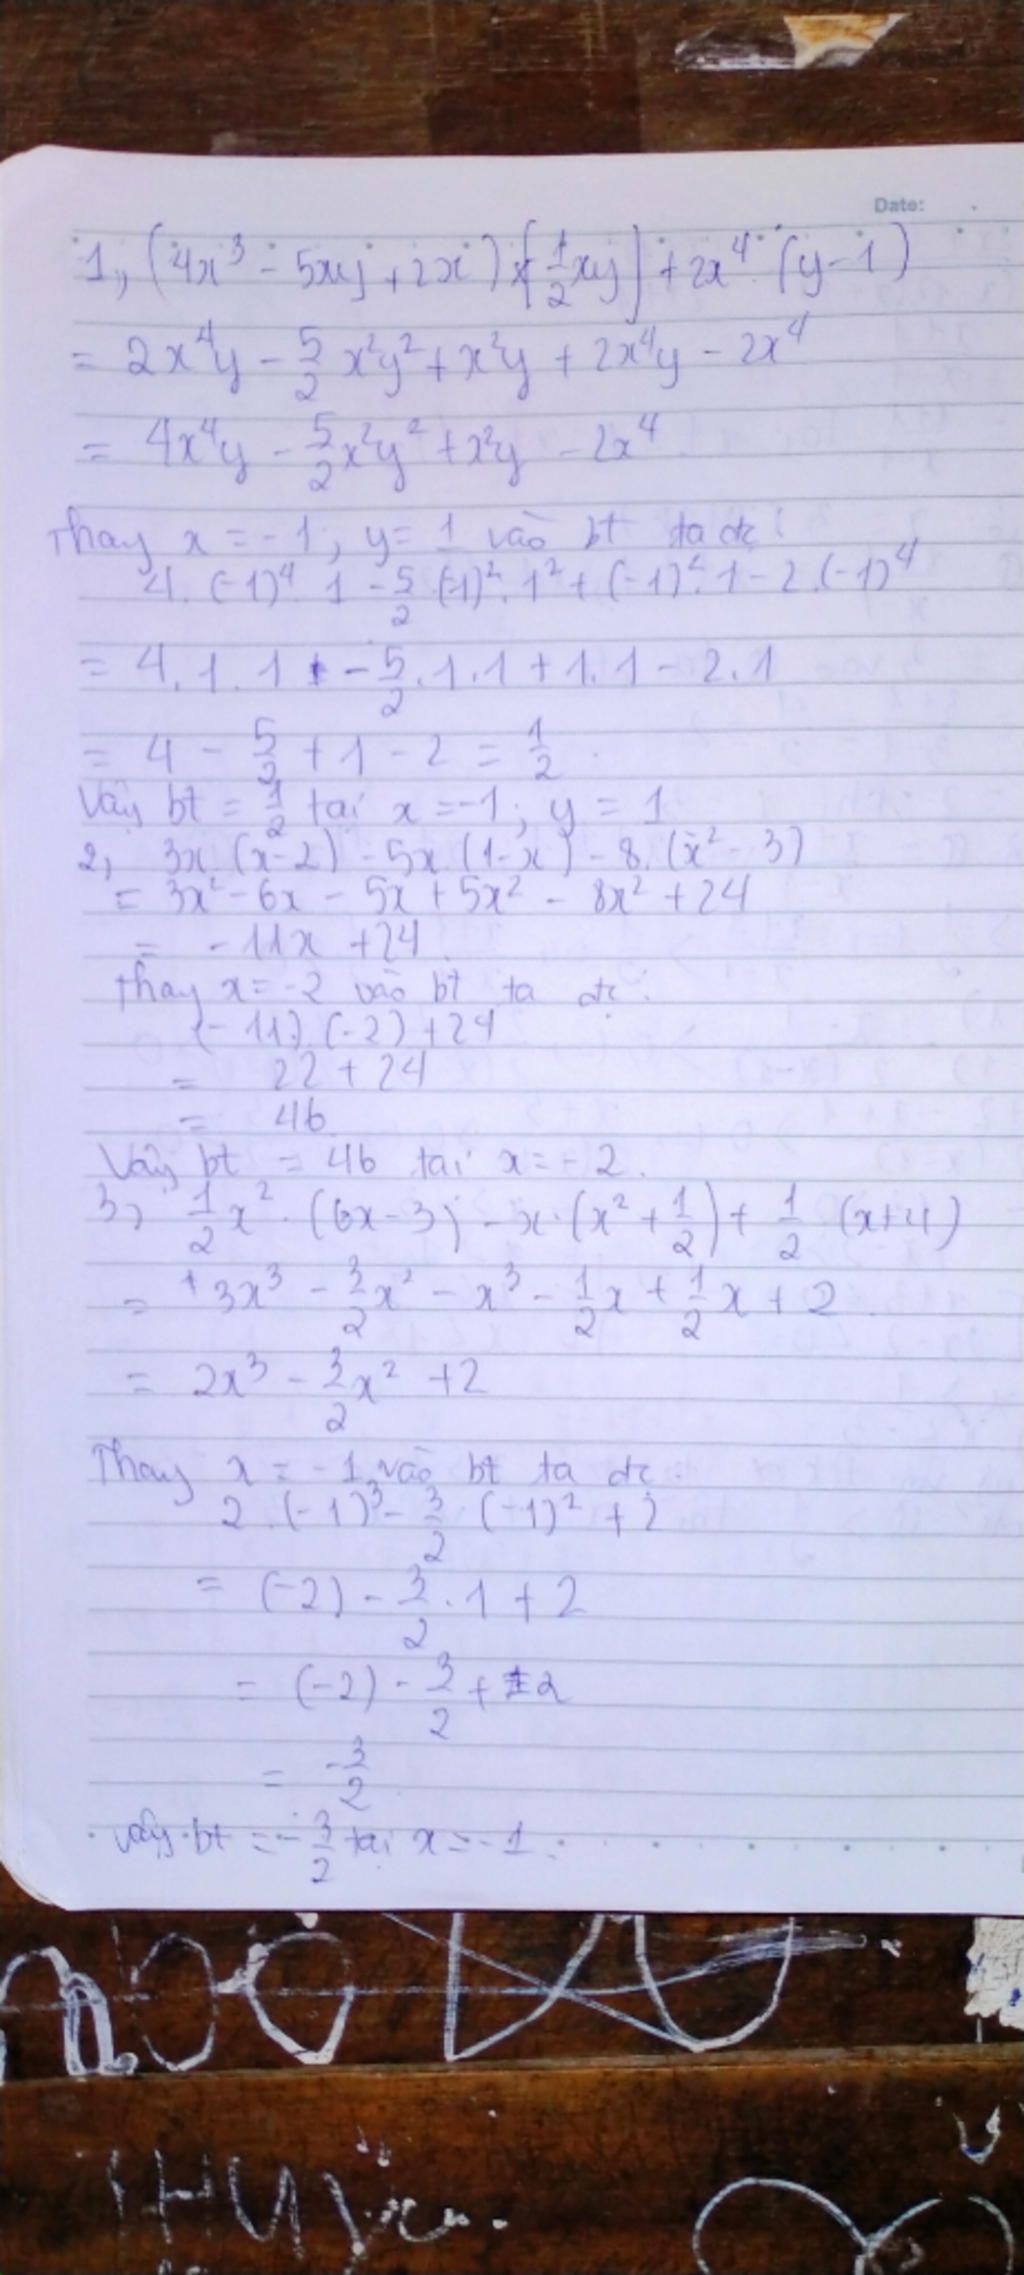 Date:
1, (4x³ - 5xy + 2x) × [1/2 xy] + 2x⁴ . (y - 1)
= 2x⁴y - 5/2 x²y² + x²y + 2x⁴y - 2x⁴
= 4x⁴y - 5/2 x²y² + x²y - 2x⁴
Thay x = -1 ; y = 1 vào bt ta đc:
4. (-1)⁴. 1 - 5/2 .(-1)². 1² + (-1)². 1 - 2 .(-1)⁴
= 4 . 1 . 1 - 5/2 . 1 . 1 + 1. 1 - 2. 1
= 4 - 5/2 + 1 - 2 = 1/2 .
Vậy bt = 1/2 tại x = -1 ; y = 1
2, 3x. (x-2) - 5x. (1-x) - 8. (x² - 3)
= 3x² - 6x - 5x + 5x² - 8x² + 24
= -11x + 24
Thay x = -2 vào bt ta đc:
(-11). (-2) + 24
= 22 + 24
= 46
Vậy bt = 46 tại x = -2.
3, 1/2 x² . (6x - 3) - x. (x² + 1/2) + 1/2 (x+4)
= 3x³ - 3/2 x² - x³ - 1/2 x + 1/2 x + 2
= 2x³ - 3/2 x² + 2
Thay x = -1 vào bt ta đc:
2 . (-1)³ - 3/2 . (-1)² + 2
= (-2) - 3/2 . 1 + 2
= (-2) - 3/2 + 2
= -3/2
Vậy bt = -3/2 tại x = -1.